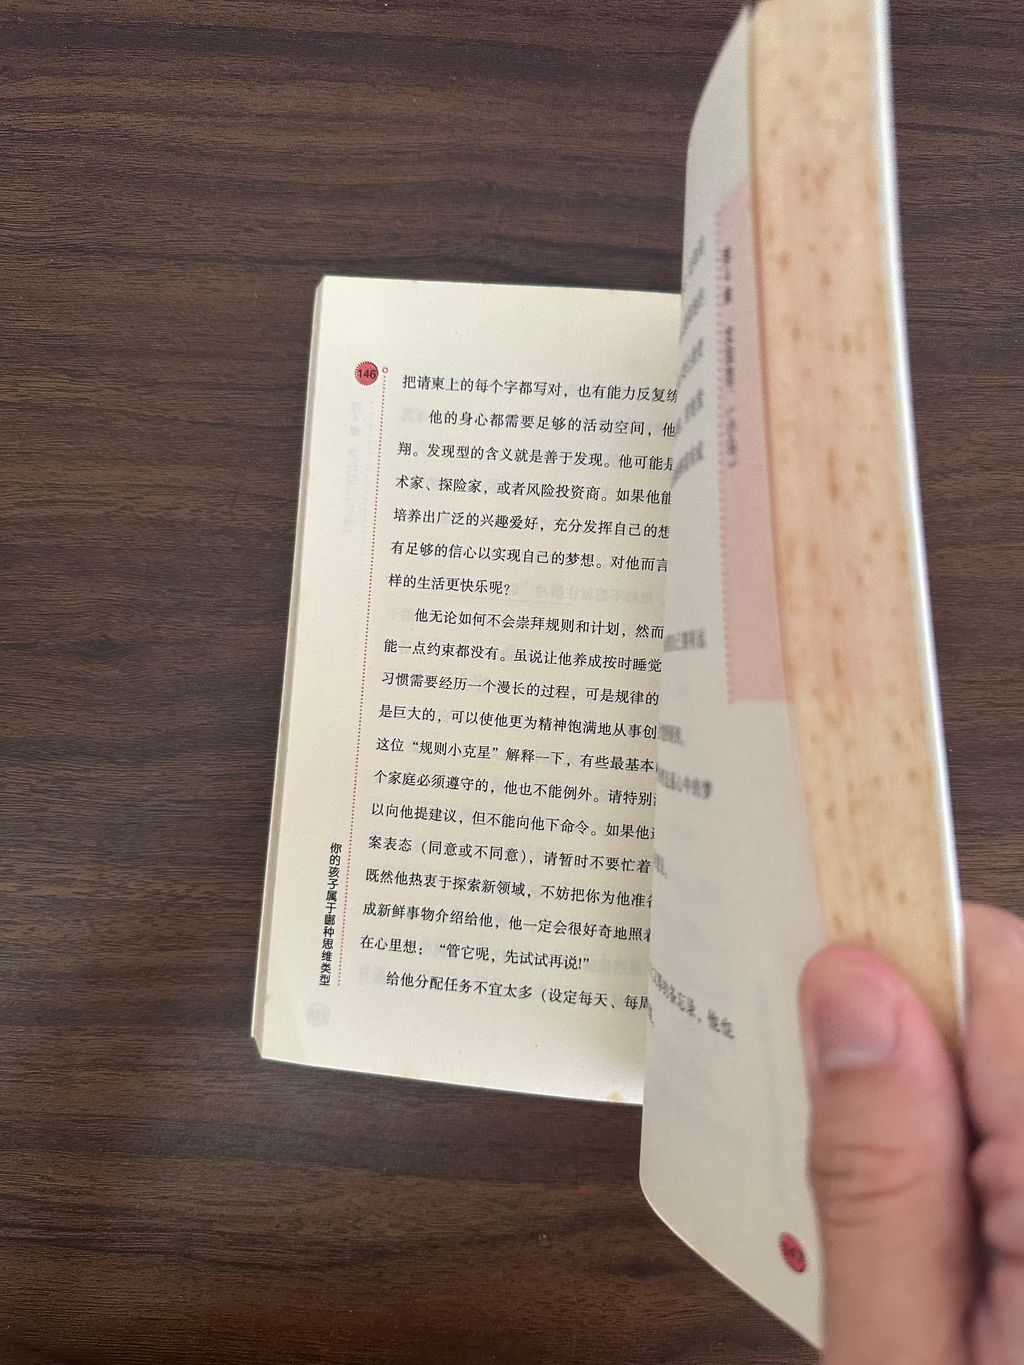 146
把请柬上的每个字都写对，也有能力反复练
他的身心都需要足够的活动空间，他
翔。发现型的含义就是善于发现。他可能是
术家、探险家，或者风险投资商。如果他能
培养出广泛的兴趣爱好，充分发挥自己的想
有足够的信心以实现自己的梦想。对他而言
样的生活更快乐呢？
他无论如何不会崇拜规则和计划，然而
能一点约束都没有。虽说让他养成按时睡觉
习惯需要经历一个漫长的过程，可是规律的
是巨大的，可以使他更为精神饱满地从事创
这位“规则小克星”解释一下，有些最基本
个家庭必须遵守的，他也不能例外。请特别
以向他提建议，但不能向他下命令。如果他
案表态（同意或不同意），请暂时不要忙着
既然他热衷于探索新领域，不妨把你为他准备
成新鲜事物介绍给他，他一定会很好奇地照着
在心里想：“管它呢，先试试再说!”
给他分配任务不宜太多（设定每天、每周
你的孩子属于哪种思维类型